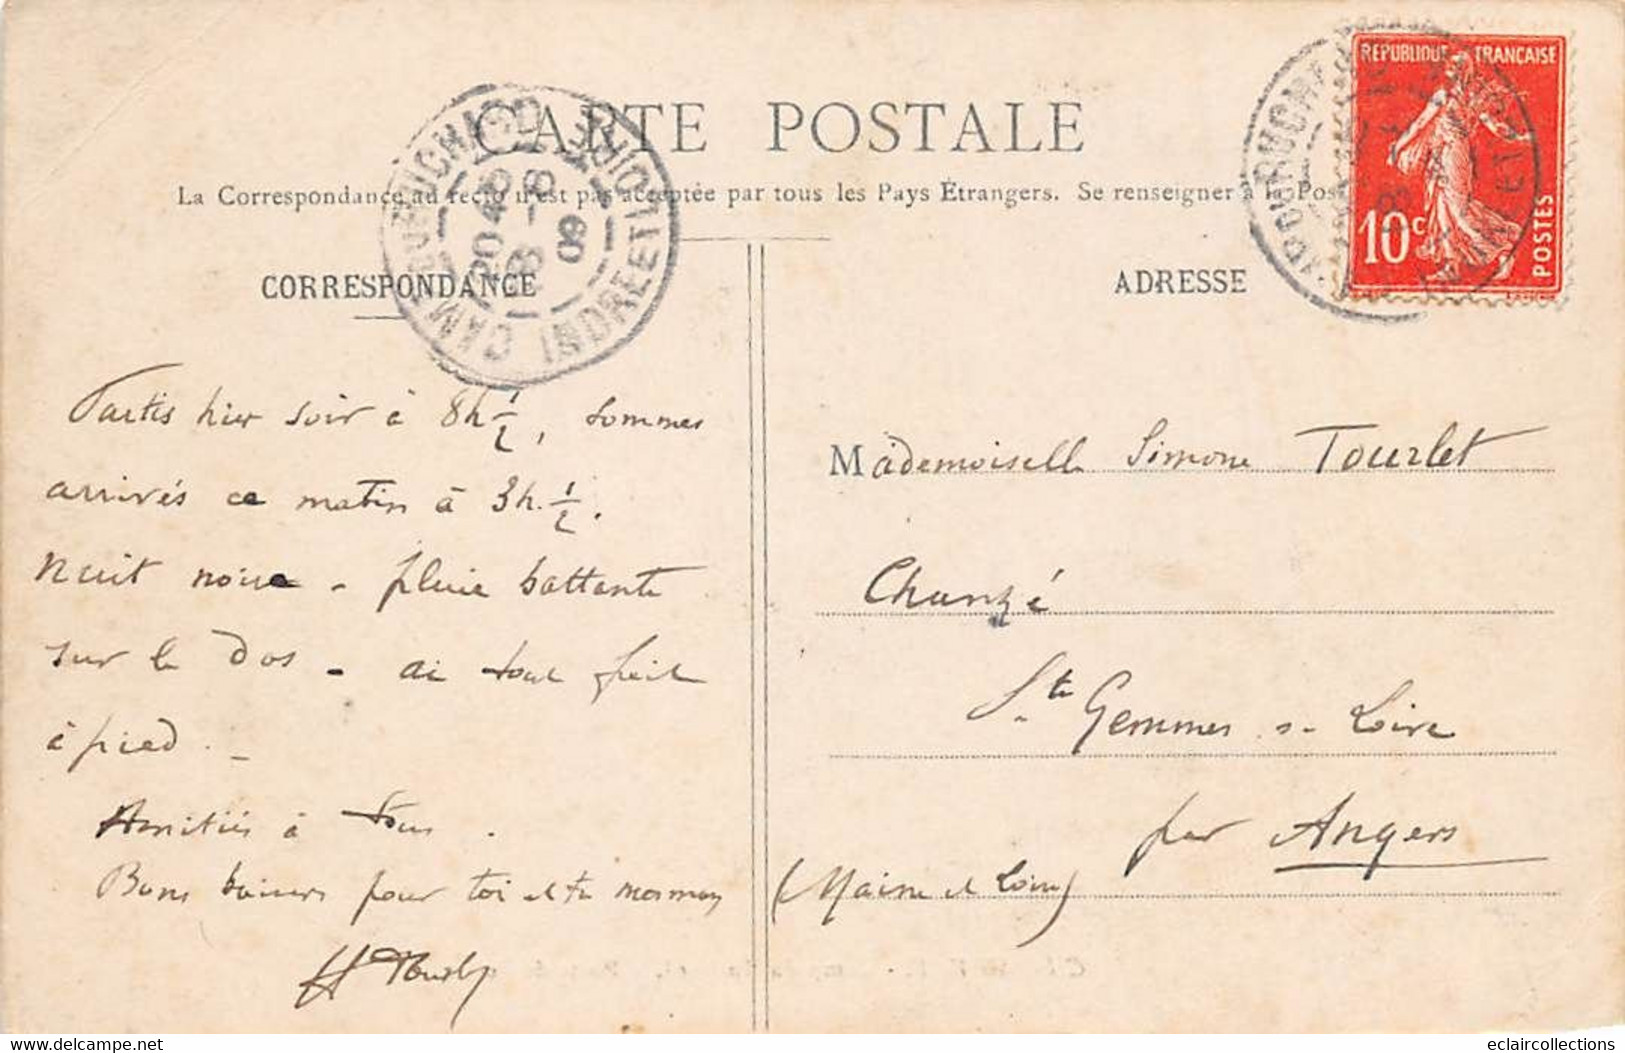 CARTE POSTALE
La Correspondance au recto n'est pas acceptée par tous les Pays Étrangers. Se renseigner à la Poste
CORRESPONDANCE
ADRESSE
REPUBLIQUE FRANÇAISE
10c
POSTES
CAMP DU RUCHARD
INDRE ET LOIRE
20 45
8 - 8
09
Partis hier soir à 8h 1/2, sommes
arrivés ce matin à 3h. 1/2.
Nuit noire - pluie battante
sur le dos - ai tout fait
à pied. -
Amitiés à tous.
Bons baisers pour toi et ta maman
Mademoiselle Simone Tourlet
Chanzé
Ste Gemmes s- Loire
par Angers
(Maine et Loire)
eclaircollections